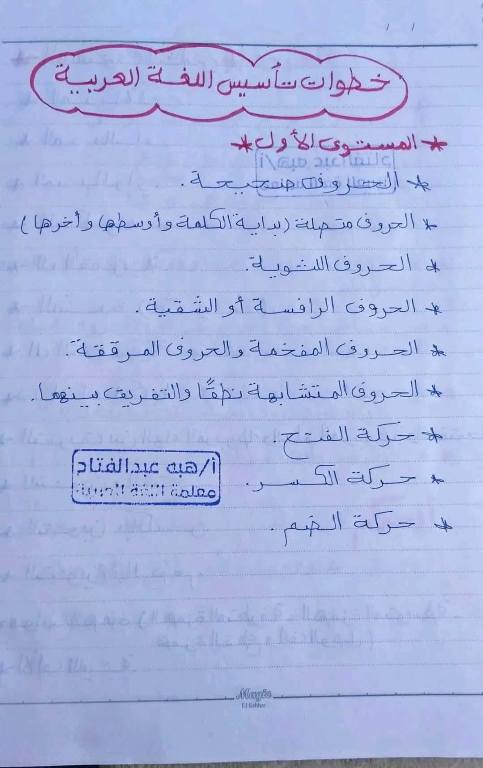 خطوات تأسيس اللغة العربية
* المستوى الأول *
* الحروف صحيحة.
* الحروف متصلة (بداية الكلمة وأوسطها وأخرها)
* الحروف اللثوية.
* الحروف الرافسة أو الشقية.
* الحروف المفخمة والحروف المرققة.
* الحروف المتشابهة نطقًا والتفريق بينهما.
* حركة الفتح.
* حركة الكسر.
* حركة الضم.
أ/هبه عبدالفتاح
معلمة اللغة العربية
Magic